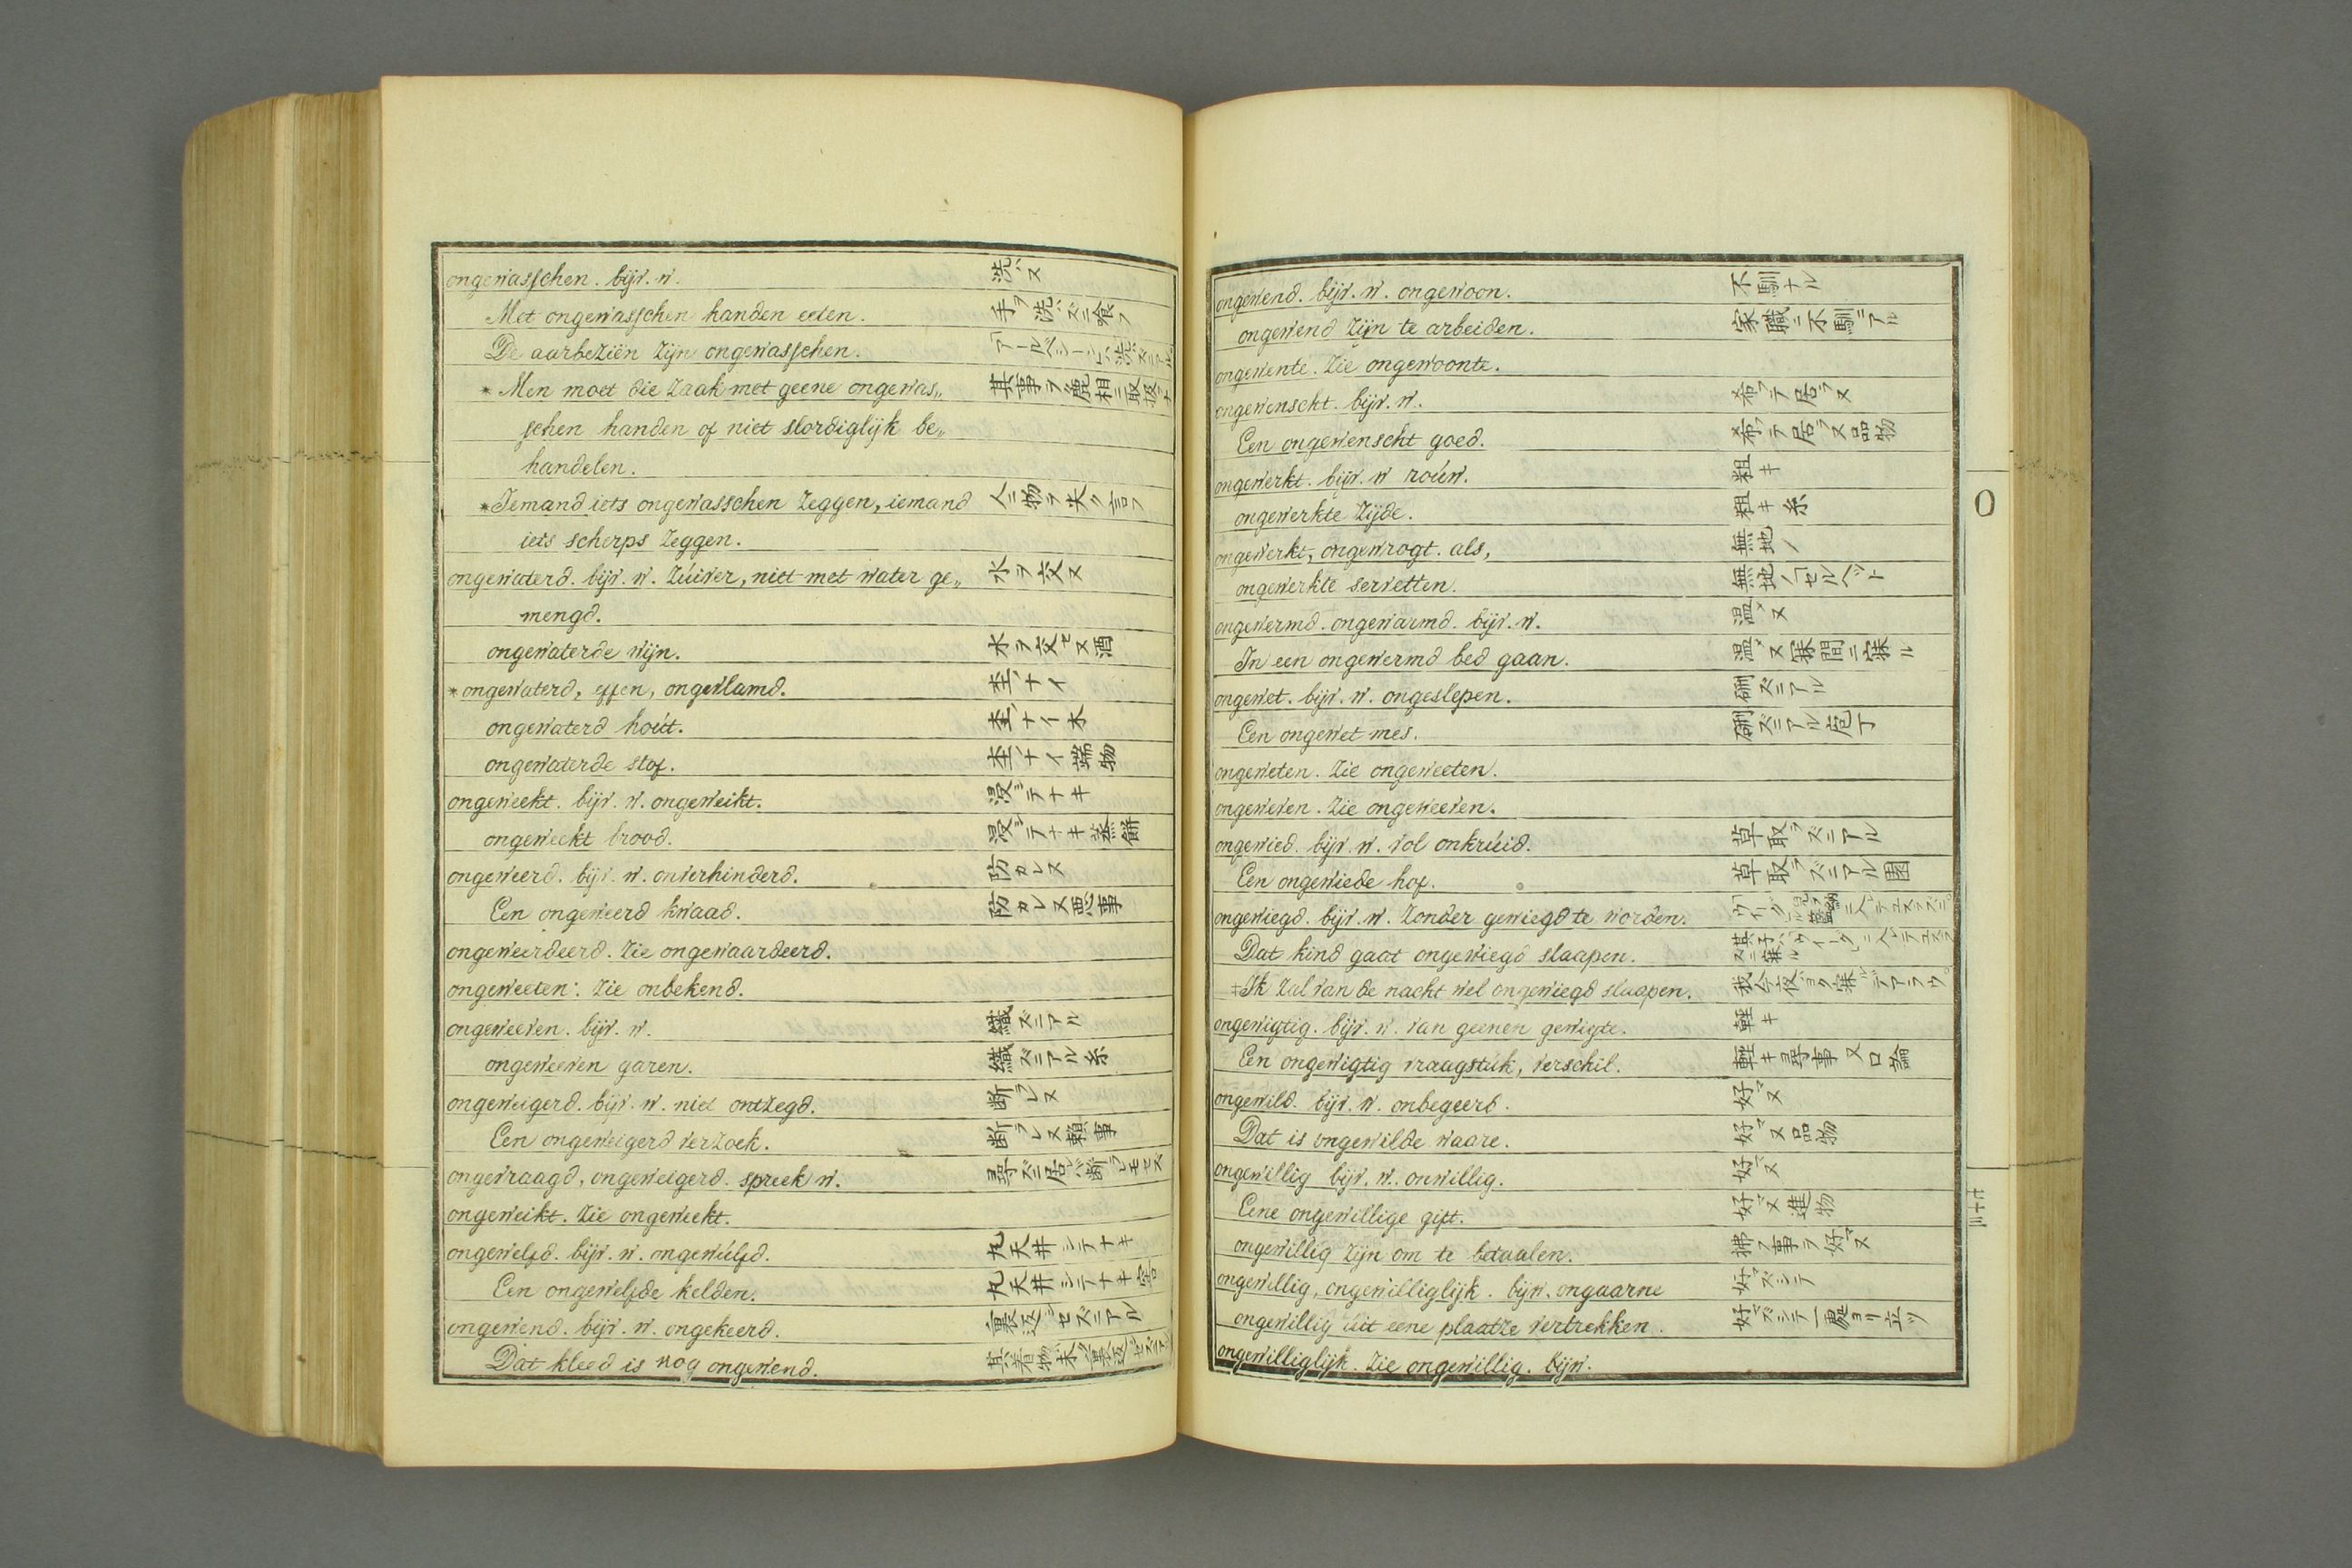 ongewasschen. bijv. w. 洗ハヌ
Met ongewasschen handen eeten. 手ヲ洗ハズニ喰フ
De aarbeziën zijn ongewasschen.
* Men moet die zaak met geene ongewas„ 其事ヲ麁相ニ取扱フナ
schen handen of niet slordiglijk be„
handelen.
* Iemand iets ongewasschen zeggen, iemand
iets scherps zeggen.
ongewaterd. bijv. w. zúiver, niet met water ge„ 水ヲ交ヌ
mengd.
ongewaterde wijn. 水ヲ交セヌ酒
* ongewaterd, effen, ongevlamd.
ongewaterd hoút.
ongewaterde stof.
ongeweekt. bijv. w. ongeweikt. 浸シテナキ
ongeweekt brood. 浸シテナキ蒸餅
ongeweerd. bijv. w. onverhinderd. 防カレヌ
Een ongeweerd kwaad. 防カレヌ悪事
ongeweerdeerd. Zie ongewaardeerd.
ongeweeten. Zie onbekend.
ongeweeven. bijv. w. 織ズニアル
ongeweeven garen. 織ズニアル糸
ongeweigerd. bijv. w. niet ontzegd. 断ラレヌ
Een ongeweigerd verzoek. 断ラレヌ頼事
ongevraagd, ongeweigerd. spreek w.
ongeweikt. Zie ongeweekt.
ongewelfd. bijv. w. ongewúlfd. 丸天井ニシテナキ
Een ongewelfde kelden. 丸天井ニシテナキ窖
ongewend. bijv. w. ongekeerd. 裏返シセズニアル
Dat kleed is nog ongewend. 其着物ハ未タ裏返シセズニアル
ongewend. bijv. w. ongewoon. 不馴ナル
ongewend zijn te arbeiden. 家職ニ不馴ニアル
ongewente. Zie ongewoonte.
ongewenscht. bijv. w. 希フテ居ラヌ
Een ongewenscht goed. 希フテ居ラヌ品物
ongewerkt. bijv. w roúw. 粗キ
ongewerkte zijde. 粗キ糸
ongewerkt, ongewrogt. als, 無地ノ
ongewerkte servetten. 無地ノ「セルヘット
ongewermd. ongewarmd. bijv. w. 温メヌ
In een ongewermd bed gaan. 温メヌ寐間ニ寐ル
ongewet. bijv. w. ongeslepen.
Een ongewet mes.
ongeweten. Zie ongeweeten.
ongeweven. Zie ongeweeven.
ongewied. bijv. w. vol onkrúid. 草取ラズニアル
Een ongewiede hof. 草取ラズニアル園
ongewiegd. bijv. w. zonder gewiegd te worden.
Dat kind gaat ongewiegd slaapen.
‡Ik zal van de nacht wel ongewiegd slaapen. 我今夜ヨク寐ルデアラウ。
ongewigtig. bijv. w. van geenen gewigte. 軽キ
Een ongewigtig vraagstúk, verschil. 軽キ尋事又口論
ongewild. bijv. w. onbegeerd. 好マヌ
Dat is ongewilde waare. 好マヌ品物
ongewillig bijv. w. onwillig. 好マヌ
Eene ongewillige gift. 好マヌ進物
ongewillig zijn om te betaalen. 拂フ事ヲ好マヌ
ongewillig, ongewilliglijk. bijw. ongaarne 好マズシテ
ongewillig úit eene plaatze vertrekken. 好マズシテ一處ヨリ立ツ
ongewilliglijk. Zie ongewillig. bijw.
O